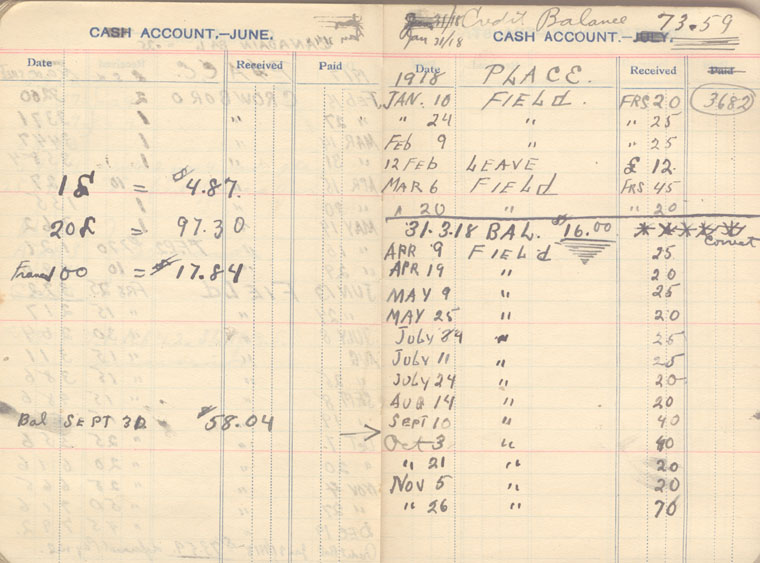 CASH ACCOUNT.—JUNE.
Date Received Paid
1£ = $4.87.
20£ = 97.30
Francs 100 = $17.84
Bal SEPT 30 $58.04
Jan 31/18 Credit Balance 73.59
CASH ACCOUNT.—JULY.
Date Received Paid
1918 PLACE.
JAN. 10 FIELD. FRS 20 3682
" 24 " " 25
Feb 9 " " 25
12 Feb LEAVE £ 12.
MAR 6 FIELD FRS 45
" 20 " " 20
31.3.18 BAL. $16.00
Correct
APR 9 FIELD 25
APR 19 " 20
MAY 9 " 25
MAY 25 " 20
July " 25
July 11 " 25
July 24 " 20
AUG 14 " 20
SEPT 10 " 40
Oct 3 " 40
" 21 " 20
Nov 5 " 20
" 26 " 70